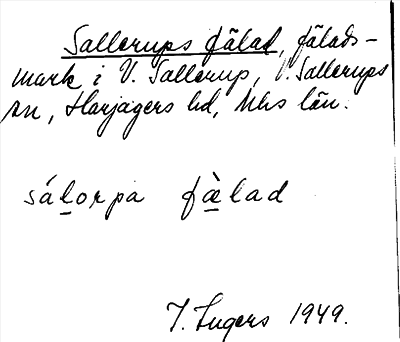 Sallerups fälad, fälads-
mark i V. Sallerup, V. Sallerups
sn, Harjagers hd, Mhs län.
sálorpa fàlad
I. Ingers 1949.